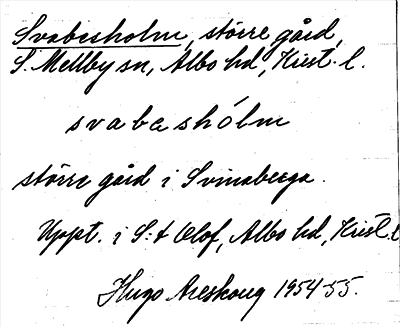 Svabesholm, större gård,
S. Mellby sn, Albo hd, Krist. l.
svabeshólm
större gård i Svinaberga.
Uppt. i S:t Olof, Albo hd, Krist. l.
Hugo Areskoug 1954-55.